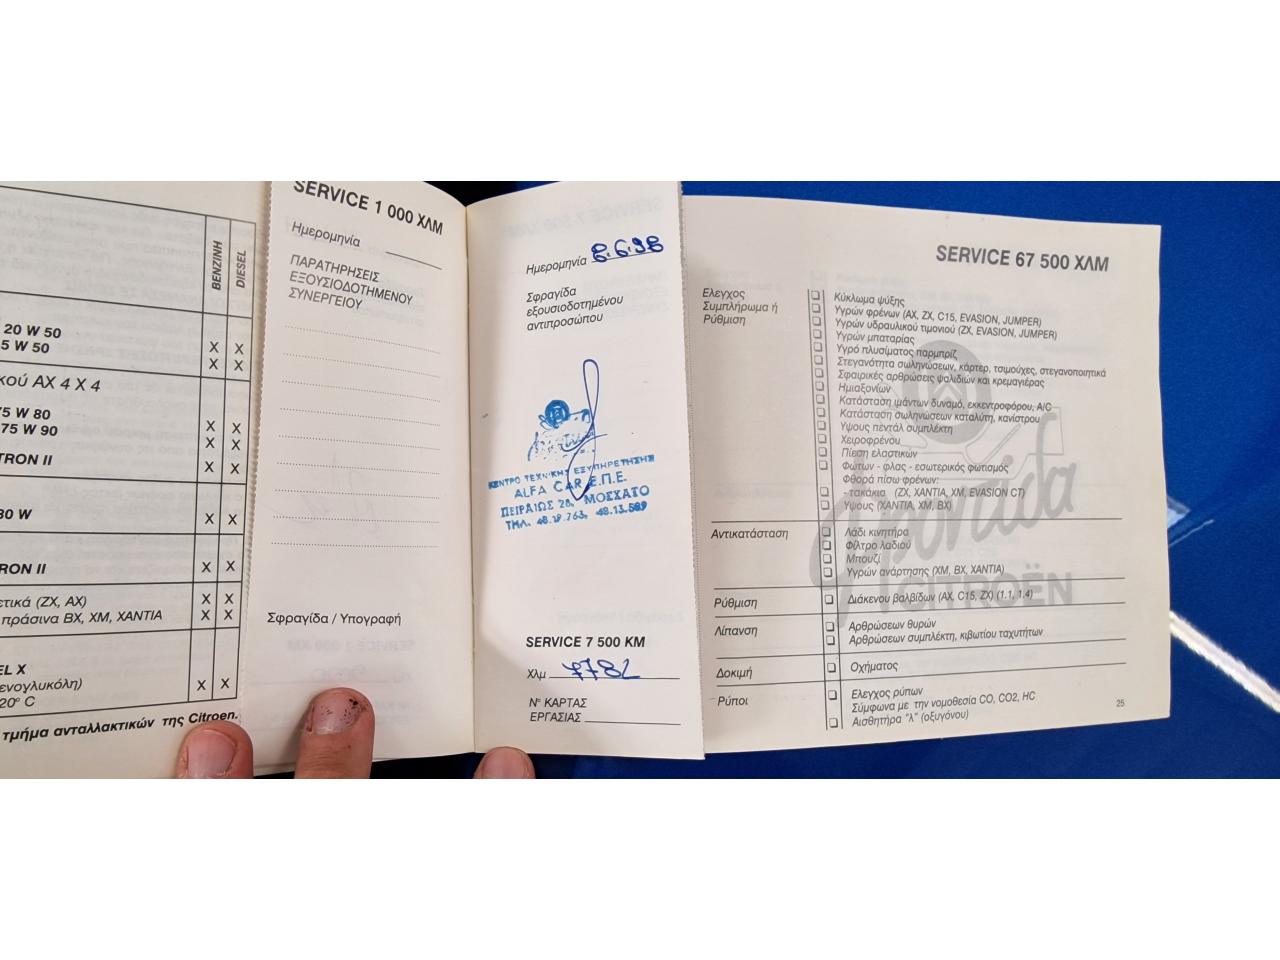 ΒΕΝΖΙΝΗ
DIESEL
20 W 50
5 W 50
X X
X X
κού AX 4 X 4
75 W 80
75 W 90
X X
X X
TRON II
X X
30 W
X X
RON II
X X
ετικά (ZX, AX)
X X
πράσινα BX, XM, XANTIA
X X
EL X
ενογλυκόλη)
X X
20° C
τμήμα ανταλλακτικών της Citroen.
SERVICE 1 000 ΧΛΜ
Ημερομηνία
ΠΑΡΑΤΗΡΗΣΕΙΣ
ΕΞΟΥΣΙΟΔΟΤΗΜΕΝΟΥ
ΣΥΝΕΡΓΕΙΟΥ
Σφραγίδα / Υπογραφή
Ημερομηνία 8.6.98
Σφραγίδα
εξουσιοδοτημένου
αντιπροσώπου
ΚΕΝΤΡΟ ΤΕΧΝΙΚΗΣ ΕΞΥΠΗΡΕΤΗΣΗΣ
ALFA CAR Ε.Π.Ε.
ΠΕΙΡΑΙΩΣ 28, ΜΟΣΧΑΤΟ
ΤΗΛ. 48.19.763, 48.13.589
SERVICE 7 500 KM
Χλμ 7782
N° ΚΑΡΤΑΣ
ΕΡΓΑΣΙΑΣ
SERVICE 67 500 ΧΛΜ
Ελεγχος
Συμπλήρωμα ή
Ρύθμιση
Κύκλωμα ψύξης
Υγρών φρένων (AX, ZX, C15, EVASION, JUMPER)
Υγρών υδραυλικού τιμονιού (ZX, EVASION, JUMPER)
Υγρών μπαταρίας
Υγρό πλυσίματος παρμπρίζ
Στεγανότητα σωληνώσεων, κάρτερ, τσιμούχες, στεγανοποιητικά
Σφαιρικές αρθρώσεις ψαλιδιών και κρεμαγιέρας
Ημιαξονίων
Κατάσταση ιμάντων δυναμό, εκκεντροφόρου, A/C
Κατάσταση σωληνώσεων καταλύτη, κανίστρου
Υψους πεντάλ συμπλέκτη
Χειροφρένου
Πίεση ελαστικών
Φώτων - φλας - εσωτερικός φωτισμός
Φθορά πίσω φρένων:
- τακάκια (ZX, XANTIA, XM, EVASION CT)
Υψους (XANTIA, XM, BX)
Αντικατάσταση
Λάδι κινητήρα
Φίλτρο λαδιού
Μπουζί
Υγρών ανάρτησης (XM, BX, XANTIA)
Ρύθμιση
Διάκενου βαλβίδων (AX, C15, ZX) (1.1, 1.4)
Λίπανση
Αρθρώσεων θυρών
Αρθρώσεων συμπλέκτη, κιβωτίου ταχυτήτων
Δοκιμή
Οχήματος
Ρύποι
Ελεγχος ρύπων
Σύμφωνα με την νομοθεσία CO, CO2, HC
Αισθητήρα "λ" (οξυγόνου)
φροντίδα
CITROËN
25